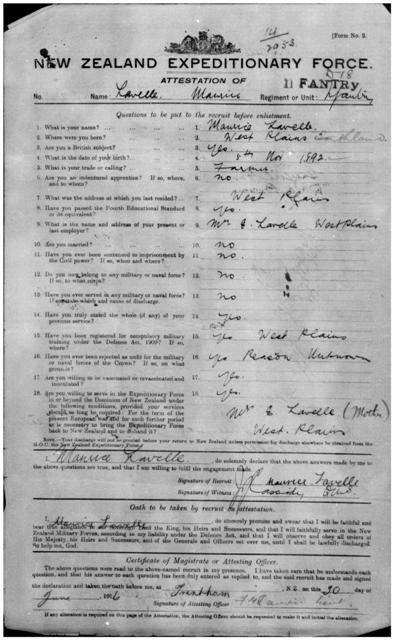 [Form No. 2.
NEW ZEALAND EXPEDITIONARY FORCE.
ATTESTATION OF
No. Name: Lavelle, Maurice Regiment or Unit: Infantry
Questions to be put to the recruit before enlistment.
1. What is your name? 1. Maurice Lavelle
2. Where were you born? 2. West Plains
3. Are you a British subject? 3. Yes
4. What is the date of your birth? 4. 8th Nov 1892
5. What is your trade or calling? 5. Farmer
6. Are you an indentured apprentice? If so, where, and to whom? 6. no
7. What was the address at which you last resided? 7. West Plains
8. Have you passed the Fourth Educational Standard or its equivalent? 8. Yes
9. What is the name and address of your present or last employer? 9. Lavelle West Plains
10. Are you married? 10. no
11. Have you ever been sentenced to imprisonment by the Civil power? If so, when and where? 11. no.
12. Do you now belong to any military or naval force? If so, to what corps? 12. no
13. Have you ever served in any military or naval force? If so, state which and cause of discharge. 13. no
14. Have you truly stated the whole (if any) of your previous service? 14. yes.
15. Have you been registered for compulsory military training under the Defence Act, 1909? If so, where? 15. Yes West Plains
16. Have you ever been rejected as unfit for the military or naval forces of the Crown? If so, on what grounds? 16. Yes Reason Unknown
17. Are you willing to be vaccinated or revaccinated and inoculated? 17. Yes
18. Are you willing to serve in the Expeditionary Force in or beyond the Dominion of New Zealand under the following conditions, provided your services should so long be required: For the term of the present European war and for such further period as is necessary to bring the Expeditionary Force back to New Zealand and to disband it? 18. Yes.
Lavelle (Mother)
West Plains
NOTE.—Your discharge will not be granted before your return to New Zealand unless permission for discharge elsewhere be obtained from the G.O.C. the New Zealand Expeditionary Force.
I, Maurice Lavelle, do solemnly declare that the above answers made by me to
the above questions are true, and that I am willing to fulfil the engagement made.
Signature of Recruit: Maurice Lavelle
Signature of Witness: Cassidy
Oath to be taken by recruit on attestation.
I, Maurice Lavelle, do sincerely promise and swear that I will be faithful and
bear true allegiance to our Sovereign Lord the King, his Heirs and Successors, and that I will faithfully serve in the
New Zealand Military Forces, according to my liability under the Defence Act, and that I will observe and obey all orders of
His Majesty, his Heirs and Successors, and of the Generals and Officers set over me, until I shall be lawfully discharged.
So help me, God.
Certificate of Magistrate or Attesting Officer.
The above questions were read to the above-named recruit in my presence. I have taken care that he understands each
question, and that his answer to each question has been duly entered as replied to, and the said recruit has made and signed
the declaration and taken the oath before me, at Trentham, N.Z., on this 20 day of
June, 1916
Signature of Attesting Officer
If any alteration is required on this page of the Attestation, the Attesting Officer should be requested to make it and initial the alteration.